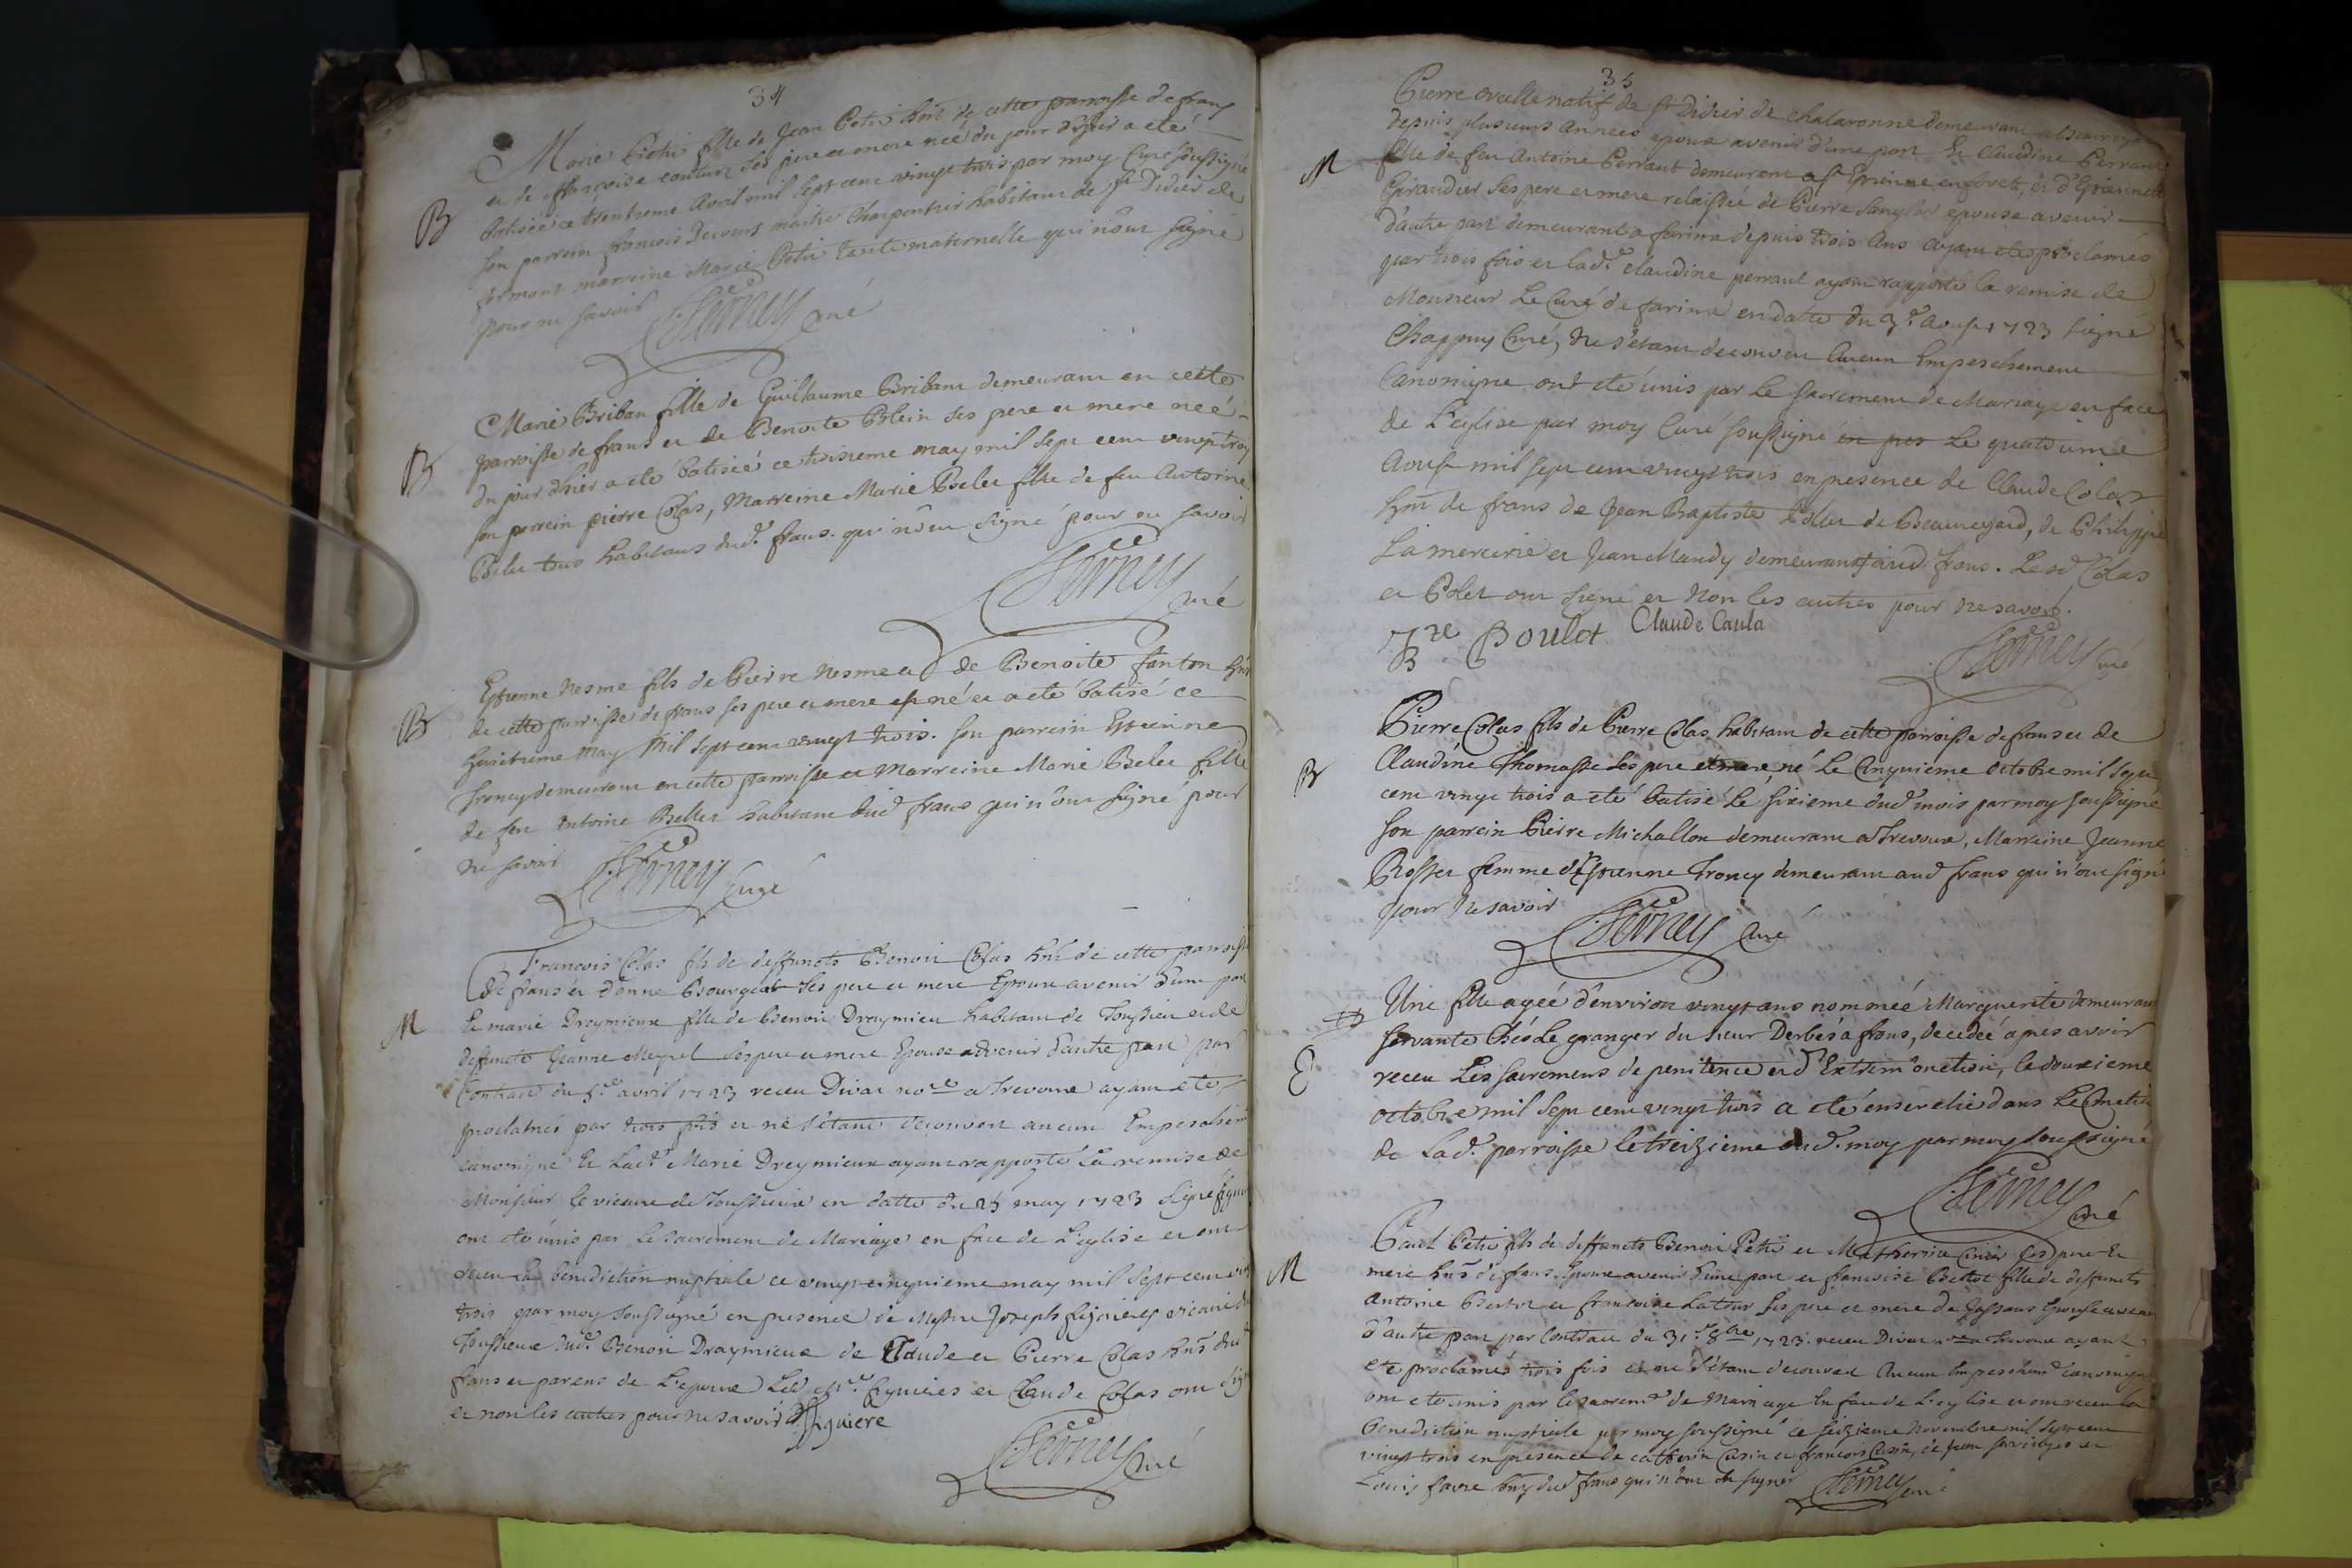 34
Marie Petit fille de Jean Petit hnt de cette parroisse de frans
et de françoise couturi ses pere et mere neé du jour d'hyer a eté
B
batiseé ce trentieme Avril mil sept cent vingt trois par moy Curé soussigné
son parrein francois Decours maitre Charpentier habitant de st Didier de
formans marreine Marie Petit tante maternelle qui n'ont signé
pour ne savoir
Verney curé
Marie Briban fille de Guillaume Briban demeurant en cette
parroisse de frans et de Benoite Blein ses pere et mere neé
B
du jour d'hier a eté batiseé ce troisieme may mil sept cent vingt trois
son parrein pierre Colas, Marreine Marie Belet fille de feu Antoine
Belet tous habitans dud. frans. qui n'ont signé pour ne savoir
Verney
curé
Estienne Nesme fils de Pierre Nesme et de Benoite fanton hns
B
de cette parroisse de frans ses pere et mere est né et a eté batisé ce
huictieme May Mil sept cent vingt trois. son parrein Estienne
Troncy demeurant en cette parroisse et Marreine Marie Belet fille
de feu Antoine Bellet habitant dud frans qui n'ont signé pour
ne savoir
Verney Curé
Francois Colas fils de deffuncts Benoit Colas hnt de cette parroisse
de frans et d'anne Bourgeat ses pere et mere Epoux avenir d'une part
M
Et marie Dreymieux fille de Benoit Dreymieu habitant de Toussieu et de
deffuncte Jeanne Meyret ses pere et mere Epouse advenir d'autre part par
Contract du 5e avril 1723 receu Divat nore a Trevoux ayant eté
proclamés par trois fois et ne s'etant decouvert aucun Empeschemt
canonique Et lad. Marie Dreymieux ayant rapporté la remise de
Monsieur le vicaire de Toussieux en datte du 25 may 1723 signé figuiere
ont eté unis par le sacrement de Mariage en face de l'eglise et ont
receu la benediction nuptiale ce vingt cinquieme may mil sept cent vingt
trois par moy soussigné en presence de Messire Joseph figuieres vicaire de
Toussieux dud. Benoit Dreymieux de Claude et Pierre Colas hns dud
frans et parens de l'epoux Led Mre figuieres et Claude Colas ont signé
et non les autres pour ne savoir figuiere
Verney Curé
35
Pierre ovelle natif de st Didier de chalaronne demeurant
depuis plusieurs années epoux avenir d'une part Et Claudine Perraut
M
fille de feu Antoine Perraut demeurant a st Etienne en foretz, et d'Etiennette
Giraudier ses pere et mere relaisseé de Pierre epouse avenir
d'autre part demeurant a farina depuis trois Ans ayant eté proclamés
par trois fois et lad. claudine perraut ayant rapporté la remise de
Monsieur Le Curé de farina en datte du 3e Aoust 1723 signé
Chappuy Curé, ne s'etant decouvert Aucun Empeschement
Canonique ont eté unis par le sacrement de Mariage en face
de L'eglise par moy Curé soussigné en pres Le quatorzieme
Aoust mil sept cent vingt trois en presence de Claude Colas
hnt de frans de Jean Baptiste Polet de Beauregard, de Philippe
Lamercerie et Jean Mandy demeurant aud. frans. Led Colas
et Polet ont signé et Non les autres pour ne savoir.
J B Poulet Claude Caula
Verney curé
Pierre Colas fils de Pierre Colas habitant de cette parroisse de frans et de
Claudine Thomasse ses pere et mere, né Le Cinquieme octobre mil sept
B
cent vingt trois a eté batisé Le sixieme dud. mois par moy soussigné
son parrein Pierre Michallon demeurant a Trevoux, Marreine Jeanne
Rosset femme d'Estienne Troncy demeurant aud frans qui n'ont signé
pour Ne savoir
Verney Curé
Une fille ageé d'environ vingt ans nommeé Marguerite demeurant
servante Chés Le granger du sieur Derbés a frans, decedeé apres avoir
E
receu Les sacremens de penitence et d'Extrem'onction, le douzieme
octobre mil sept cent vingt trois a eté ensevelie dans Le Cimetiere
de Lad. parroisse le treizieme dud. moy par moy soussigné
Verney curé
Paul Petit fils de deffuncts Benoit Petit et Matherine ses pere Et
M
mere hns de frans. Epoux avenir d'une part et francoise Bertot fille de deffuncts
Antoine Bertot et francoise Latour ses pere et mere de Jassans Epouse avenir
d'autre part par Contract du 31e 8bre 1723. receu Divat nore a Trevoux ayant
eté proclamés trois fois et ne s'etant decouvert Aucun Empeschemt Canonique
ont eté unis par le sacremt de Mariage En face de L'eglise et ont receu la
benediction nuptiale par moy soussigné ce seizieme Novembre mil sept cent
vingt trois en presence de Catherin Cusin et francois Cusin, de Jean et
Louis favre hns dud frans qui n'ont sçu signer
Verney curé